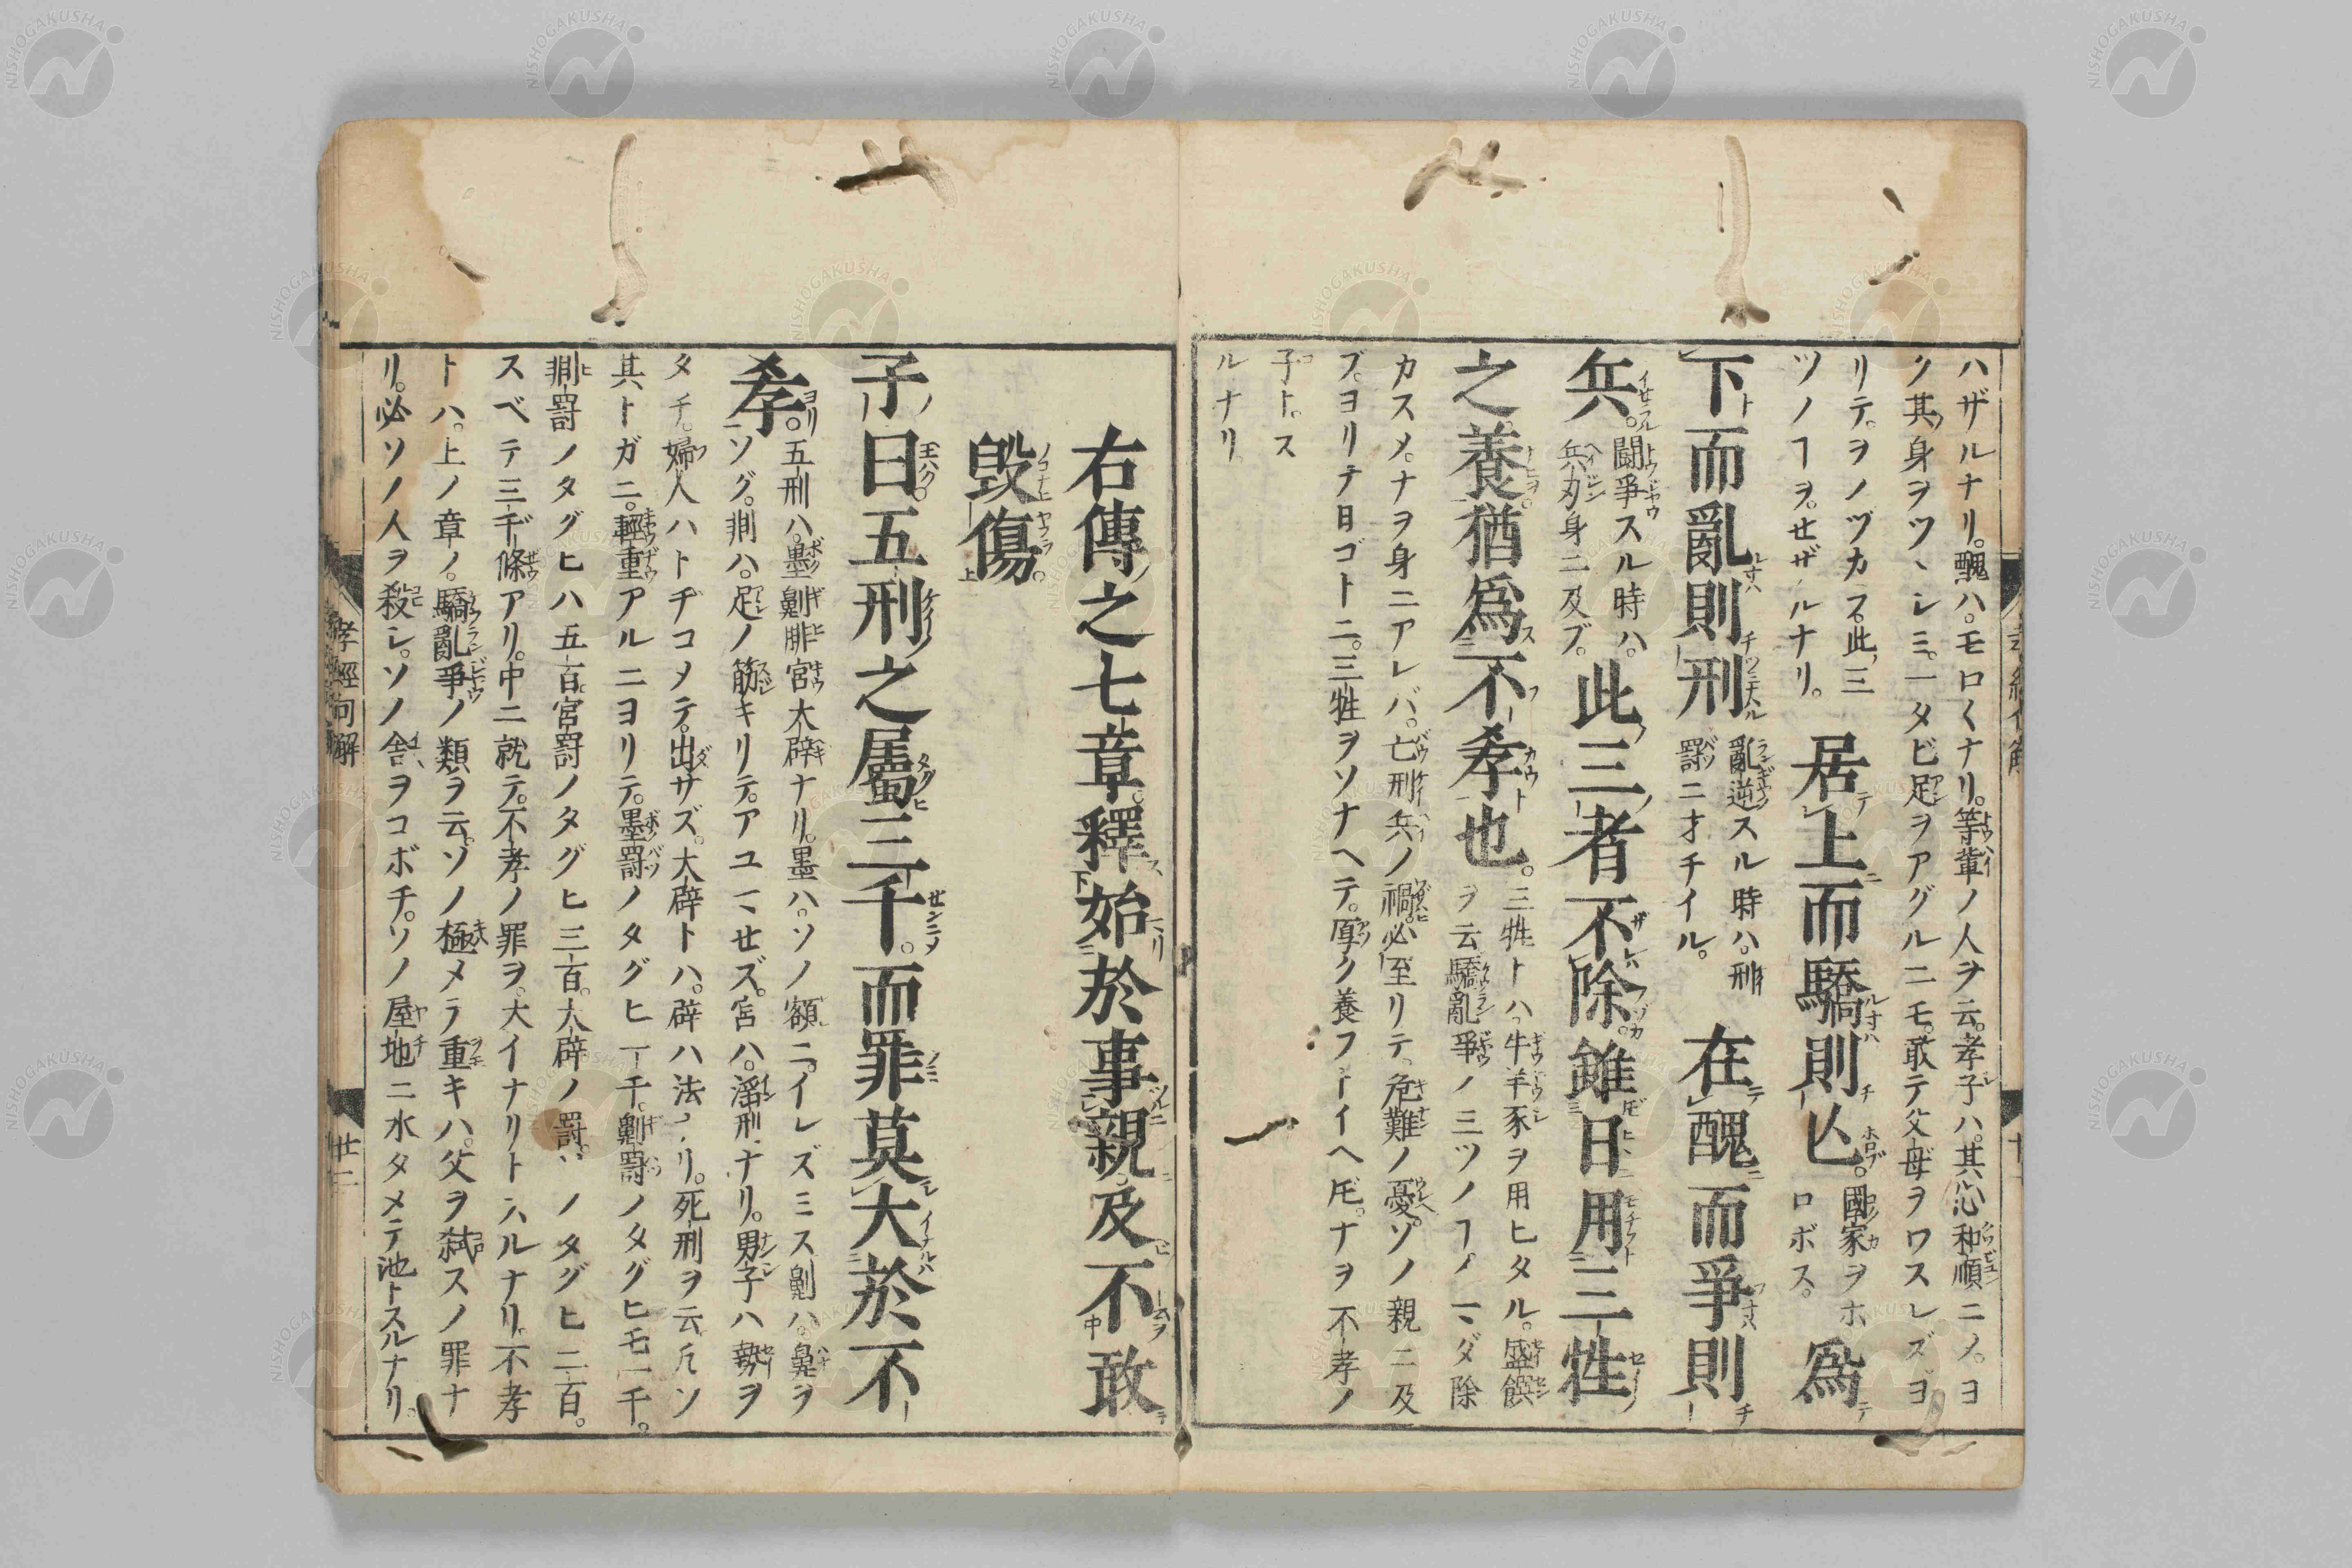 ハザルナリ。醜ハ。モロ〱ナリ。等輩ノ人ヲ云。孝子ハ。其心和順ニメ。ヨ
ク其身ヲツヽシミ。一タビ足ヲアグルニモ。敢テ父母ヲワスレズ。ヨ
リテ。ヲノヅカラ。此三
ツノヿヲ。せザルナリ。
居上而驕則亾。國家ヲホ
ロボス。
爲
下而亂則刑
亂逆スル時ハ。刑
罸ニオチイル。
在醜而爭則
兵。
鬪爭スル時ハ。
兵刃身ニ及ブ。
此三者不除雖日用三牲
之養猶爲不孝也。
三牲トハ。牛羊豕ヲ用ヒタル。盛饌
ヲ云。驕亂爭ノ三ツノヿ。マダ除
カズメ。ナヲ身ニアレバ。亡刑兵ノ禍。必至リテ。危難ノ憂。ソノ親ニ及
ブ。ヨリテ日ゴトニ。三牲ヲソナヘテ。厚ク養フトイヘ𪜈。ナヲ不孝ノ
子トス
ルナリ
右傳之七章釋始於事親及不敢
毀傷
子曰五刑之屬三千。而罪莫大於不
孝。
五刑ハ。墨劓腓宮大辟ナリ。墨ハ。ソノ額ニ。イレズミス劓ハ。鼻ヲ
ソグ。剕ハ。足ノ筋キリテ。アユマせズ。宮ハ。淫刑ナリ。男子ハ勢ヲ
タチ。婦人ハトヂコメテ。出サズ。大辟トハ。辟ハ法ナリ。死刑ヲ云凡ソ
其トガニ。輕重アルニヨリテ。墨罸ノタグヒ一千。劓罸ノタグヒモ一千。
剕罸ノタグヒハ五百。宮罸ノタグヒ三百。大辟ノ罸ノタグヒ二百。
スベテ三千條アリ。中ニ就テ。不孝ノ罪ヲ。大イナリトスルナリ。不孝
トハ。上ノ章ノ。驕亂爭ノ類ヲ云。ソノ極メテ重キハ。父ヲ弑スノ罪ナ
リ。必ソノ人ヲ殺シ。ソノ舎ヲコボチ。ソノ屋地ニ水タメテ池トスルナリ。
孝經句解
廿二